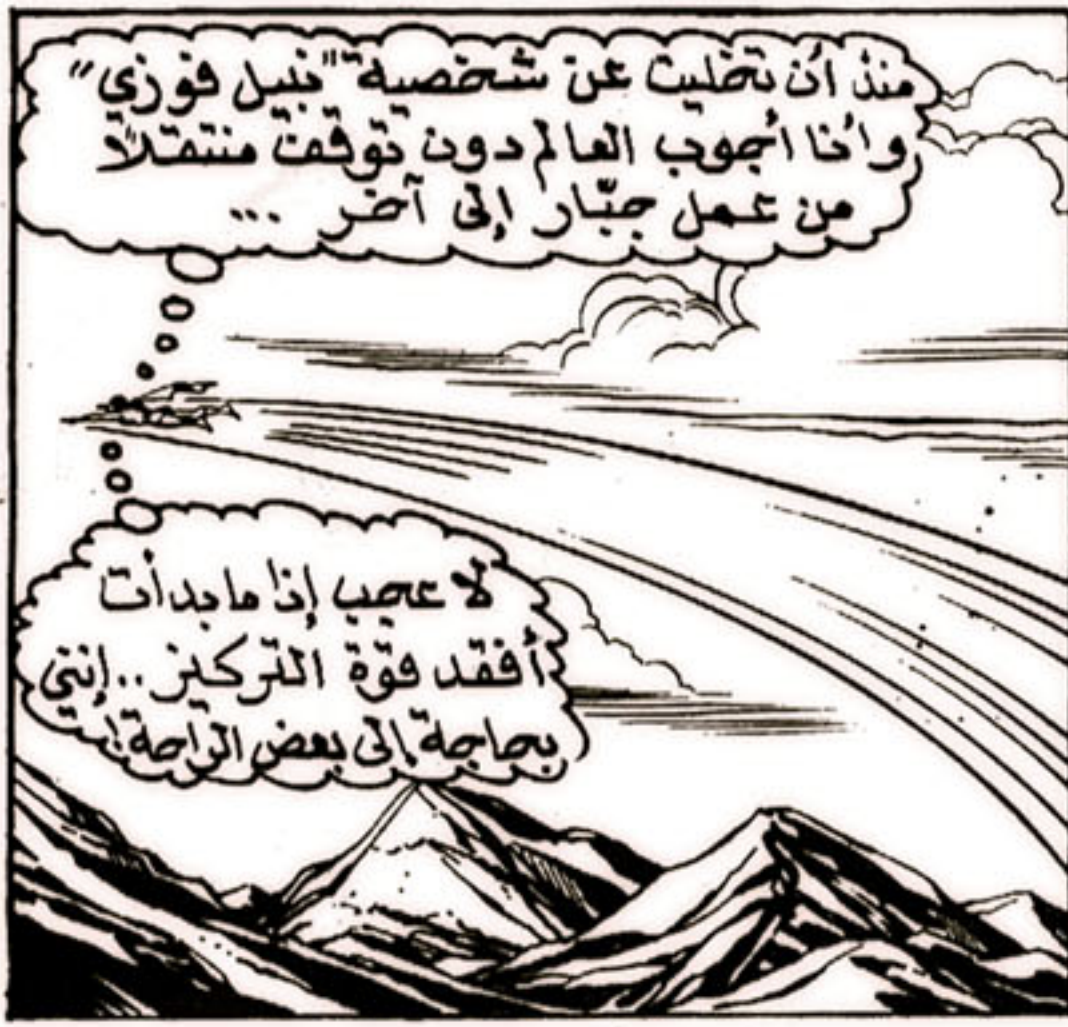 منذ أن تخليت عن شخصية "نبيل فوزي"
وأنا أجوب العالم دون توقف منتقلاً
من عمل جبّار إلى آخر ...
لا عجيب إذا ما بدأت
أفقد قوّة التركيز .. إنني
بحاجة إلى بعض الرّاحة!